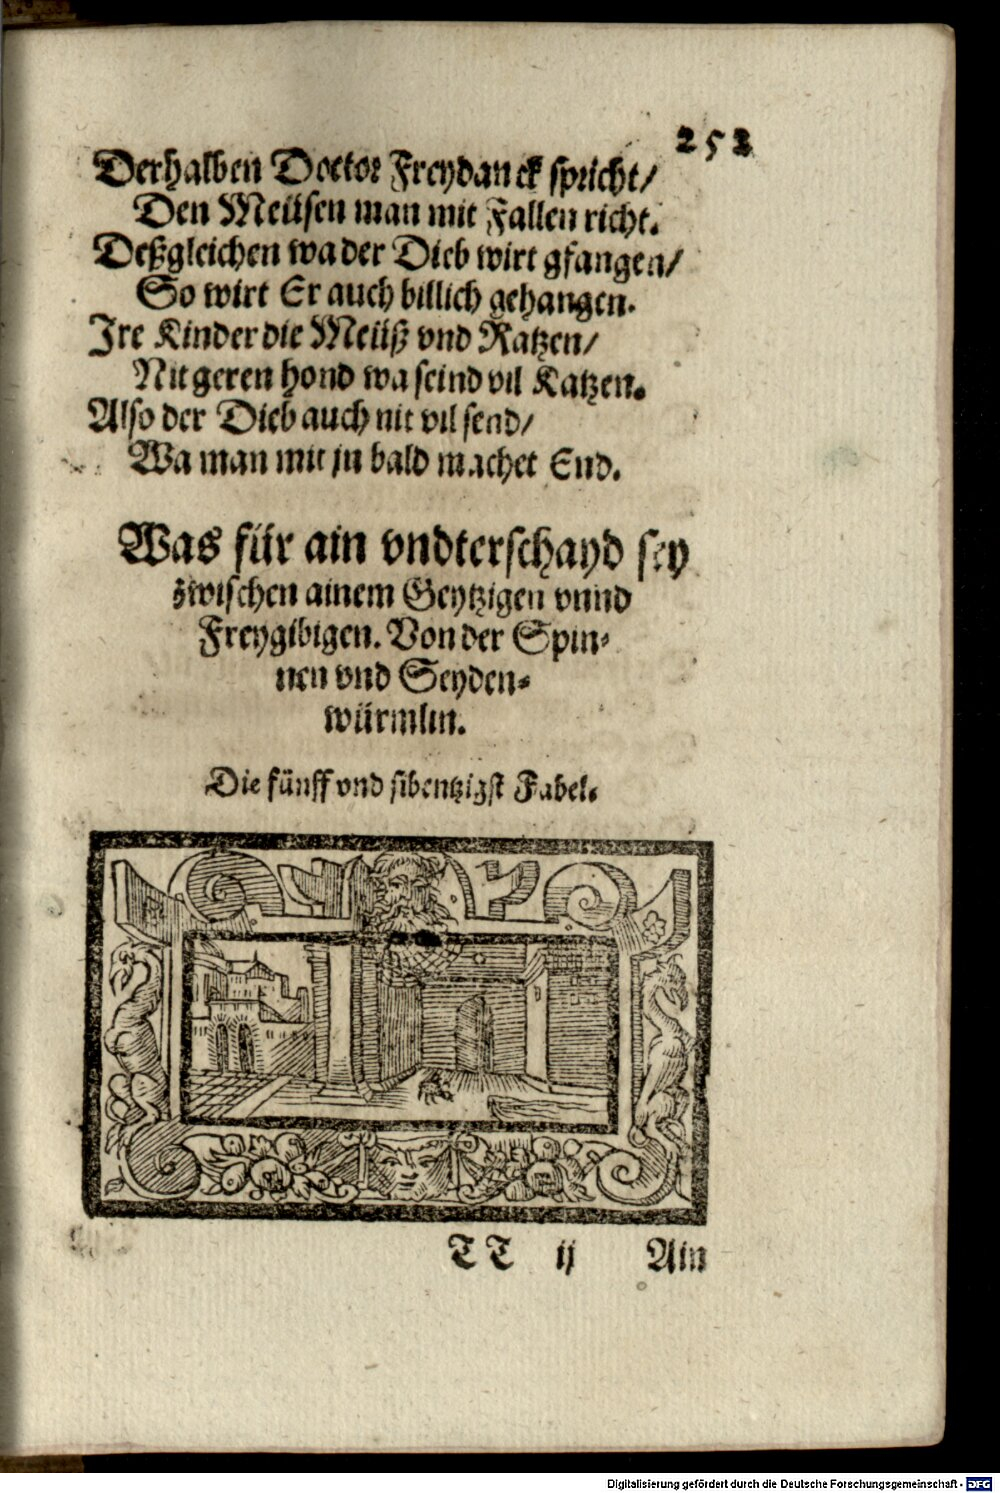 252
Derhalben Doctor Freydanck spricht/
Den Meüsen man mit Fallen richt.
Deßgleichen wa der Dieb wirt gfangen/
So wirt Er auch billich gehangen.
Jre Kinder die Meüß vnd Ratzen/
Nit geren hond wa seind vil Katzen.
Also der Dieb auch nit vil send/
Wa man mit jn bald machet End.
Was für ain vndterschayd sey
zwischen ainem Geytzigen vnnd
Freygibigen. Von der Spin⸗
nen vnd Seyden⸗
würmlin.
Die fünff vnd sibentzigst Fabel.
TT ij Ain
Digitalisierung gefördert durch die Deutsche Forschungsgemeinschaft - DFG